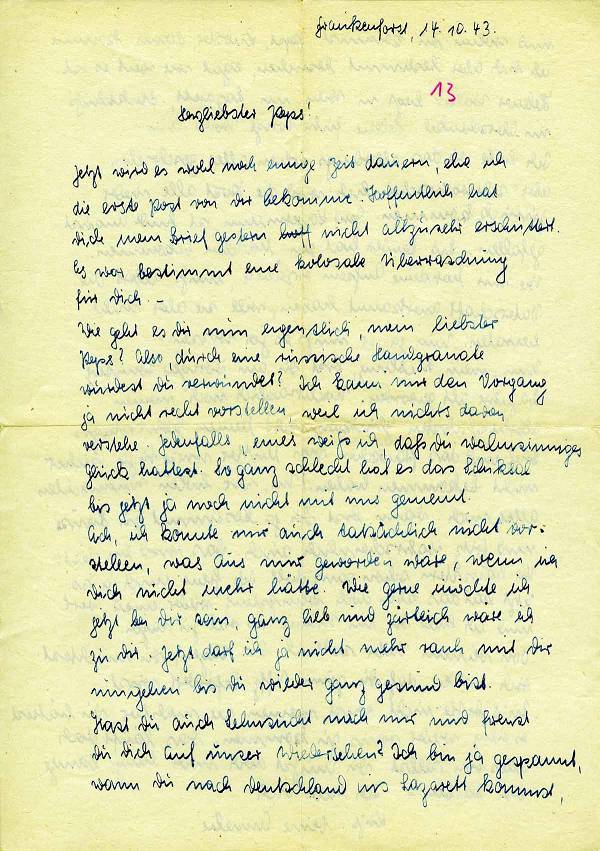 Frankenforst, 14.10.43.
13
Herzliebster Peps!
Jetzt wird es wohl noch einige Zeit dauern, ehe ich
die erste Post von dir bekomme. Hoffentlich hat
dich mein Brief gestern hoff nicht allzusehr erschüttert.
Es war bestimmt eine kolosale Überraschung
für dich. –
Wie geht es dir nun eigentlich, mein liebster
Peps? Also, durch eine russische Handgranate
wurdest du verwundet? Ich kann mir den Vorgang
ja nicht recht vorstellen, weil ich nichts davon
verstehe. Jedenfalls, eines weiß ich, daß du wahnsinniges
Glück hattest. So ganz schlecht hat es das Schiksal
bis jetzt ja noch nicht mit mir gemeint.
Ach, ich könnte mir auch tatsächlich nicht vor-
stellen, was aus mir geworden wäre, wenn ich
dich nicht mehr hätte. Wie gerne möchte ich
jetzt bei dir sein, ganz lieb und zärtlich wäre ich
zu dir. Jetzt darf ich ja nicht mehr rauh mit dir
umgehen bis du wieder ganz gesund bist.
Hast du auch Sehnsucht nach mir und freust
du dich auf unser Wiedersehen? Ich bin ja gespannt,
wann du nach Deutschland ins Lazarett kommst,